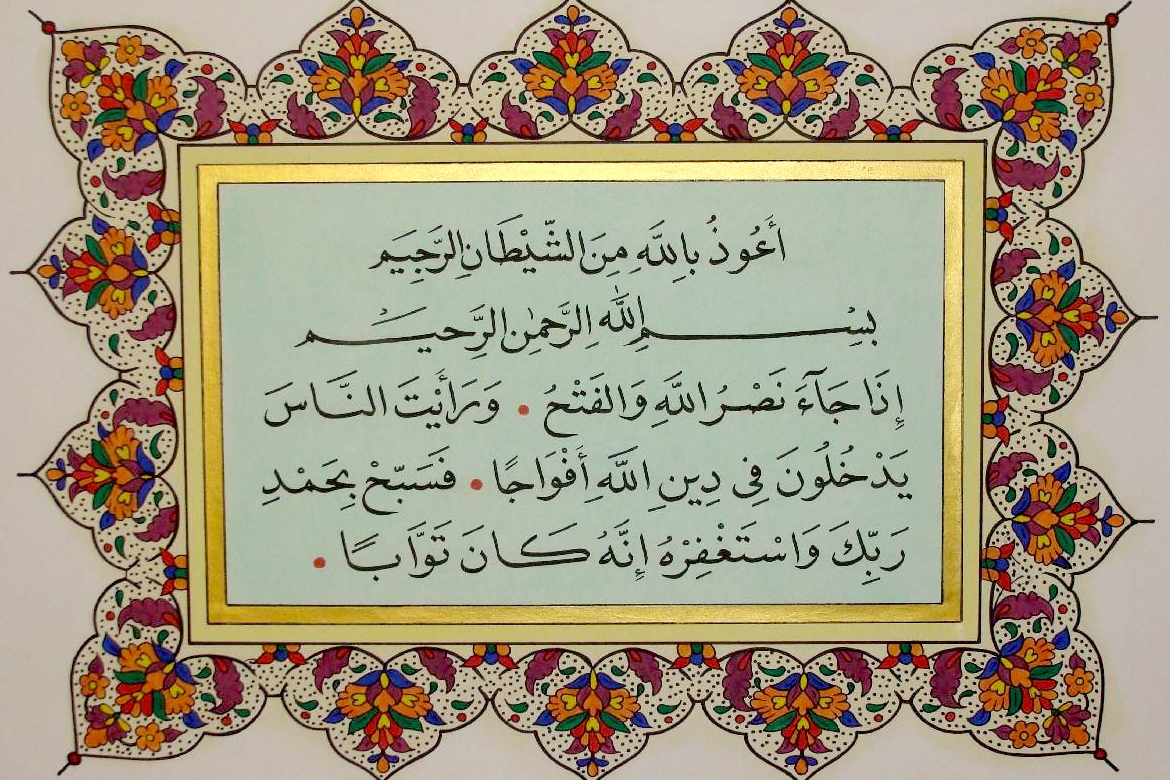 أَعُوذُ بِاللَّهِ مِنَ الشَّيْطَانِ الرَّجِيمِ
بِسْمِ اللَّهِ الرَّحْمٰنِ الرَّحِيمِ
إِذَا جَآءَ نَصْرُ اللَّهِ وَالفَتْحُ • وَرَأَيْتَ النَّاسَ
يَدْخُلُونَ فِي دِينِ اللَّهِ أَفْوَاجًا • فَسَبِّحْ بِحَمْدِ
رَبِّكَ وَاسْتَغْفِرْهُ إِنَّهُ كَانَ تَوَّابًا •